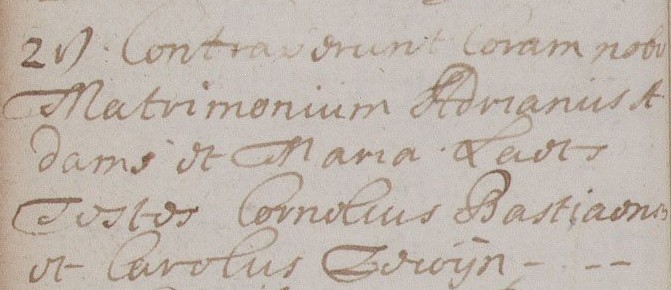 29 Contraxerunt Coram nobis
Matrimonium Adrianus A
dams et Maria Leets
Testes Cornelius Bastiaens
et Carolus Zewijn - - -